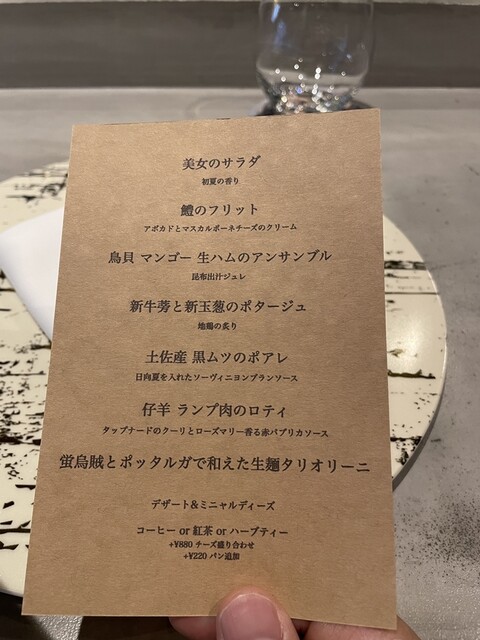 美女のサラダ
初夏の香り
鱧のフリット
アボカドとマスカルポーネチーズのクリーム
鳥貝 マンゴー 生ハムのアンサンブル
昆布出汁ジュレ
新牛蒡と新玉葱のポタージュ
地鶏の炙り
土佐産 黒ムツのポアレ
日向夏を入れたソーヴィニヨンブランソース
仔羊 ランプ肉のロティ
タップナードのクーリとローズマリー香る赤パプリカソース
蛍烏賊とボッタルガで和えた生麺タリオリーニ
デザート&ミニャルディーズ
コーヒー or 紅茶 or ハーブティー
+¥880 チーズ盛り合わせ
+¥220 パン追加